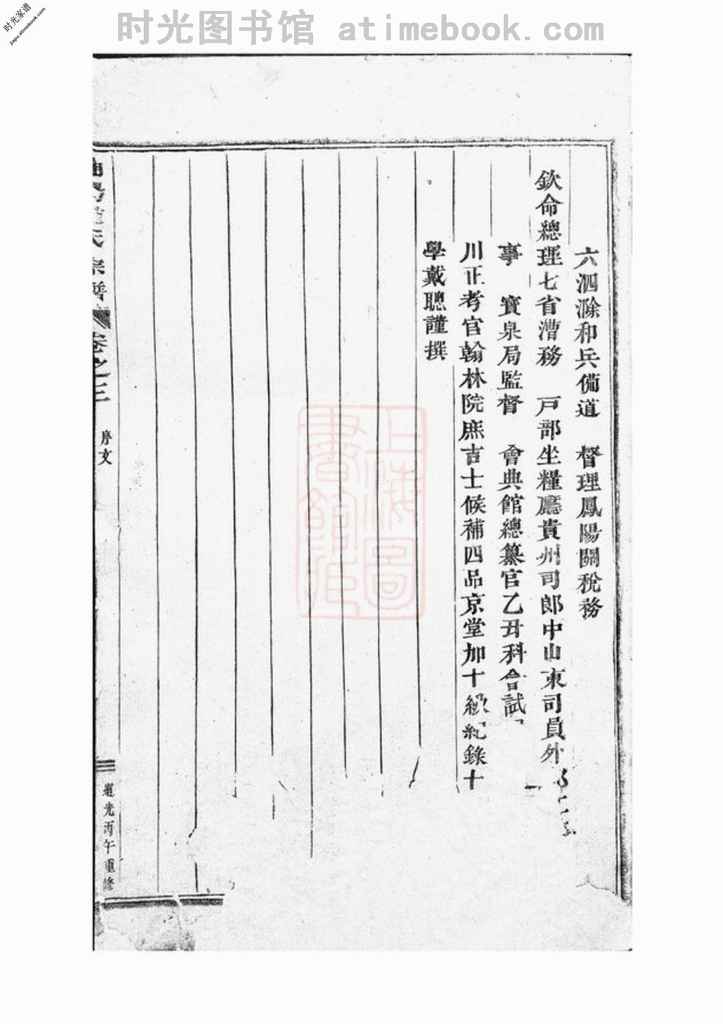 时光图书馆 atimebook.com
时光家谱
jiapu.atimebook.com
六泗滁和兵備道 督理鳳陽關稅務
欽命總理七省漕務 戸部坐糧廳貴州司郎中山東司員外
事 寳泉局監督 會典館總纂官乙丑科會試
川正考官翰林院庶吉士候補四品京堂加十級紀錄十
學戴聰謹撰
氏宗譜 卷之三 序文
道光丙午重修
上海圖書館藏